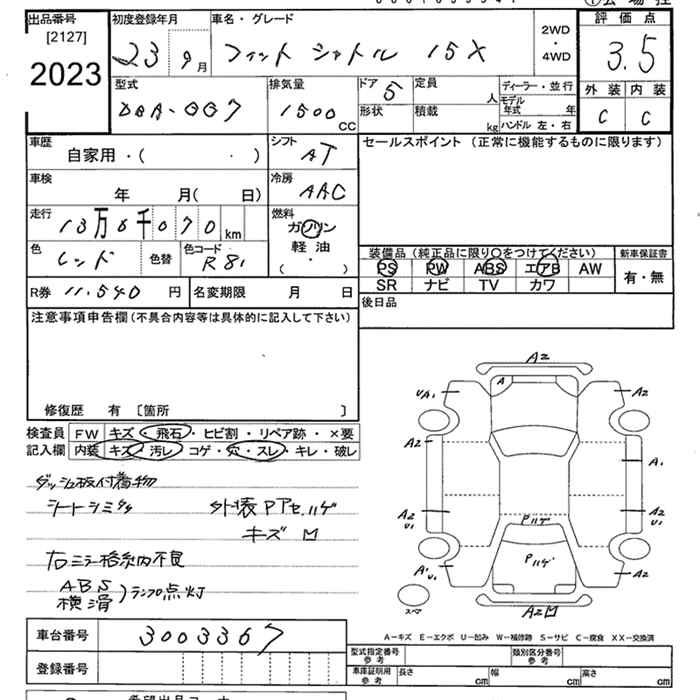 出品番号 初度登録年月 車名・グレード 評価点
[2127] 2WD
2023 23 9月 フィット シャトル 15X ・ 3.5
4WD
型式 排気量 ドア 5 定員 人 ディーラー・並行 外装 内装
DBA-GG7 1500CC 形状 積載 kg モデル年式 年 C C
ハンドル 左・右
車歴 自家用・( ・ ) シフト AT セールスポイント (正常に機能するものに限ります)
車検 年 月( 日) 冷房 AAC
走行 13万8千070km 燃料 ガソリン
軽油
( ・ )
色 レッド 色替 色コード R81 装備品(純正品に限り○をつけてください) 新車保証書
PS PW ABS エアB AW 有・無
SR ナビ TV カワ
R券 11.540円 名変期限 月 日 後日品
注意事項申告欄(不具合内容等は具体的に記入して下さい)
修復歴 有 〔箇所 〕
検査員 FW キズ・飛石・ヒビ割・リペア跡・×要
記入欄 内装 キズ・汚レ・コゲ・穴・スレ・キレ・破レ
ダッシュ板付着物
シートシミ
外装Pアセ.ハゲ
キズ凹
右ミラー格納不良
ABS
横滑
)ランプ点灯
A2
A
UA1 A2
A2 A1
A2 U1 A2 U1
Pハゲ
Pハゲ
A1 U1 A2
スペア
A2凹
A-キズ E-エクボ U-凹み W-補修跡 S-サビ C-腐食 XX-交換済
車台番号 3003367
型式指定番号 参考 類別区分番号 参考
登録番号 車庫証明用 参考 長さ cm 幅 cm 高さ cm